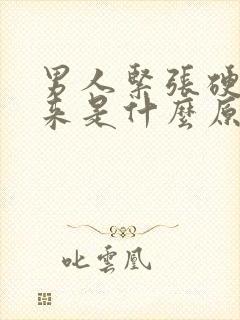 男人緊張硬
來是什麼原
叱雲凰